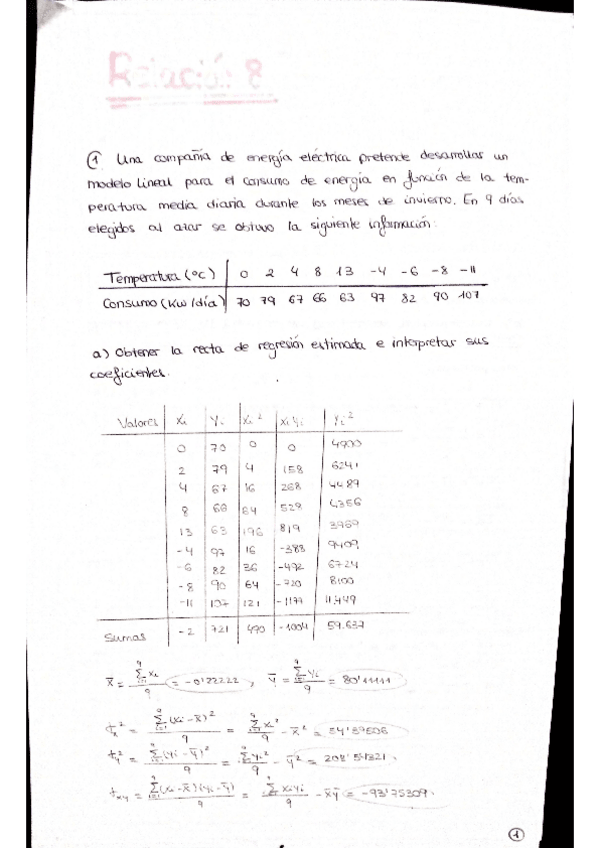 Relación 8
① Una compañía de energía eléctrica pretende desarrollar un
modelo lineal para el consumo de energía en función de la tem-
peratura media diaria durante los meses de invierno. En 9 días
elegidos al azar se obtuvo la siguiente información:
Temperatura (ºC) | 0 2 4 8 13 -4 -6 -8 -11
Consumo (Kw/día) | 70 79 67 66 63 97 82 90 107
a) Obtener la recta de regresión estimada e interpretar sus
coeficientes.
Valores | xi | yi | xi² | xiyi | yi²
0 70 0 0 4900
2 79 4 158 6241
4 67 16 268 4489
8 66 64 528 4356
13 63 196 819 3969
-4 97 16 -388 9409
-6 82 36 -492 6724
-8 90 64 -720 8100
-11 107 121 -1177 11,449
Sumas | -2 | 721 | 490 | -1004 | 59.637
x̄ = Σxi / 9 = -0'22222 , ȳ = Σyi / 9 = 80'11111
Σ(xi - x̄)² / 9 = Σxi² / 9 - x̄² = 54'39506
Σ(yi - ȳ)² / 9 = Σyi² / 9 - ȳ² = 208'54321
Σ(xi - x̄)(yi - ȳ) / 9 = Σxiyi / 9 - x̄ȳ = -93'75309
①